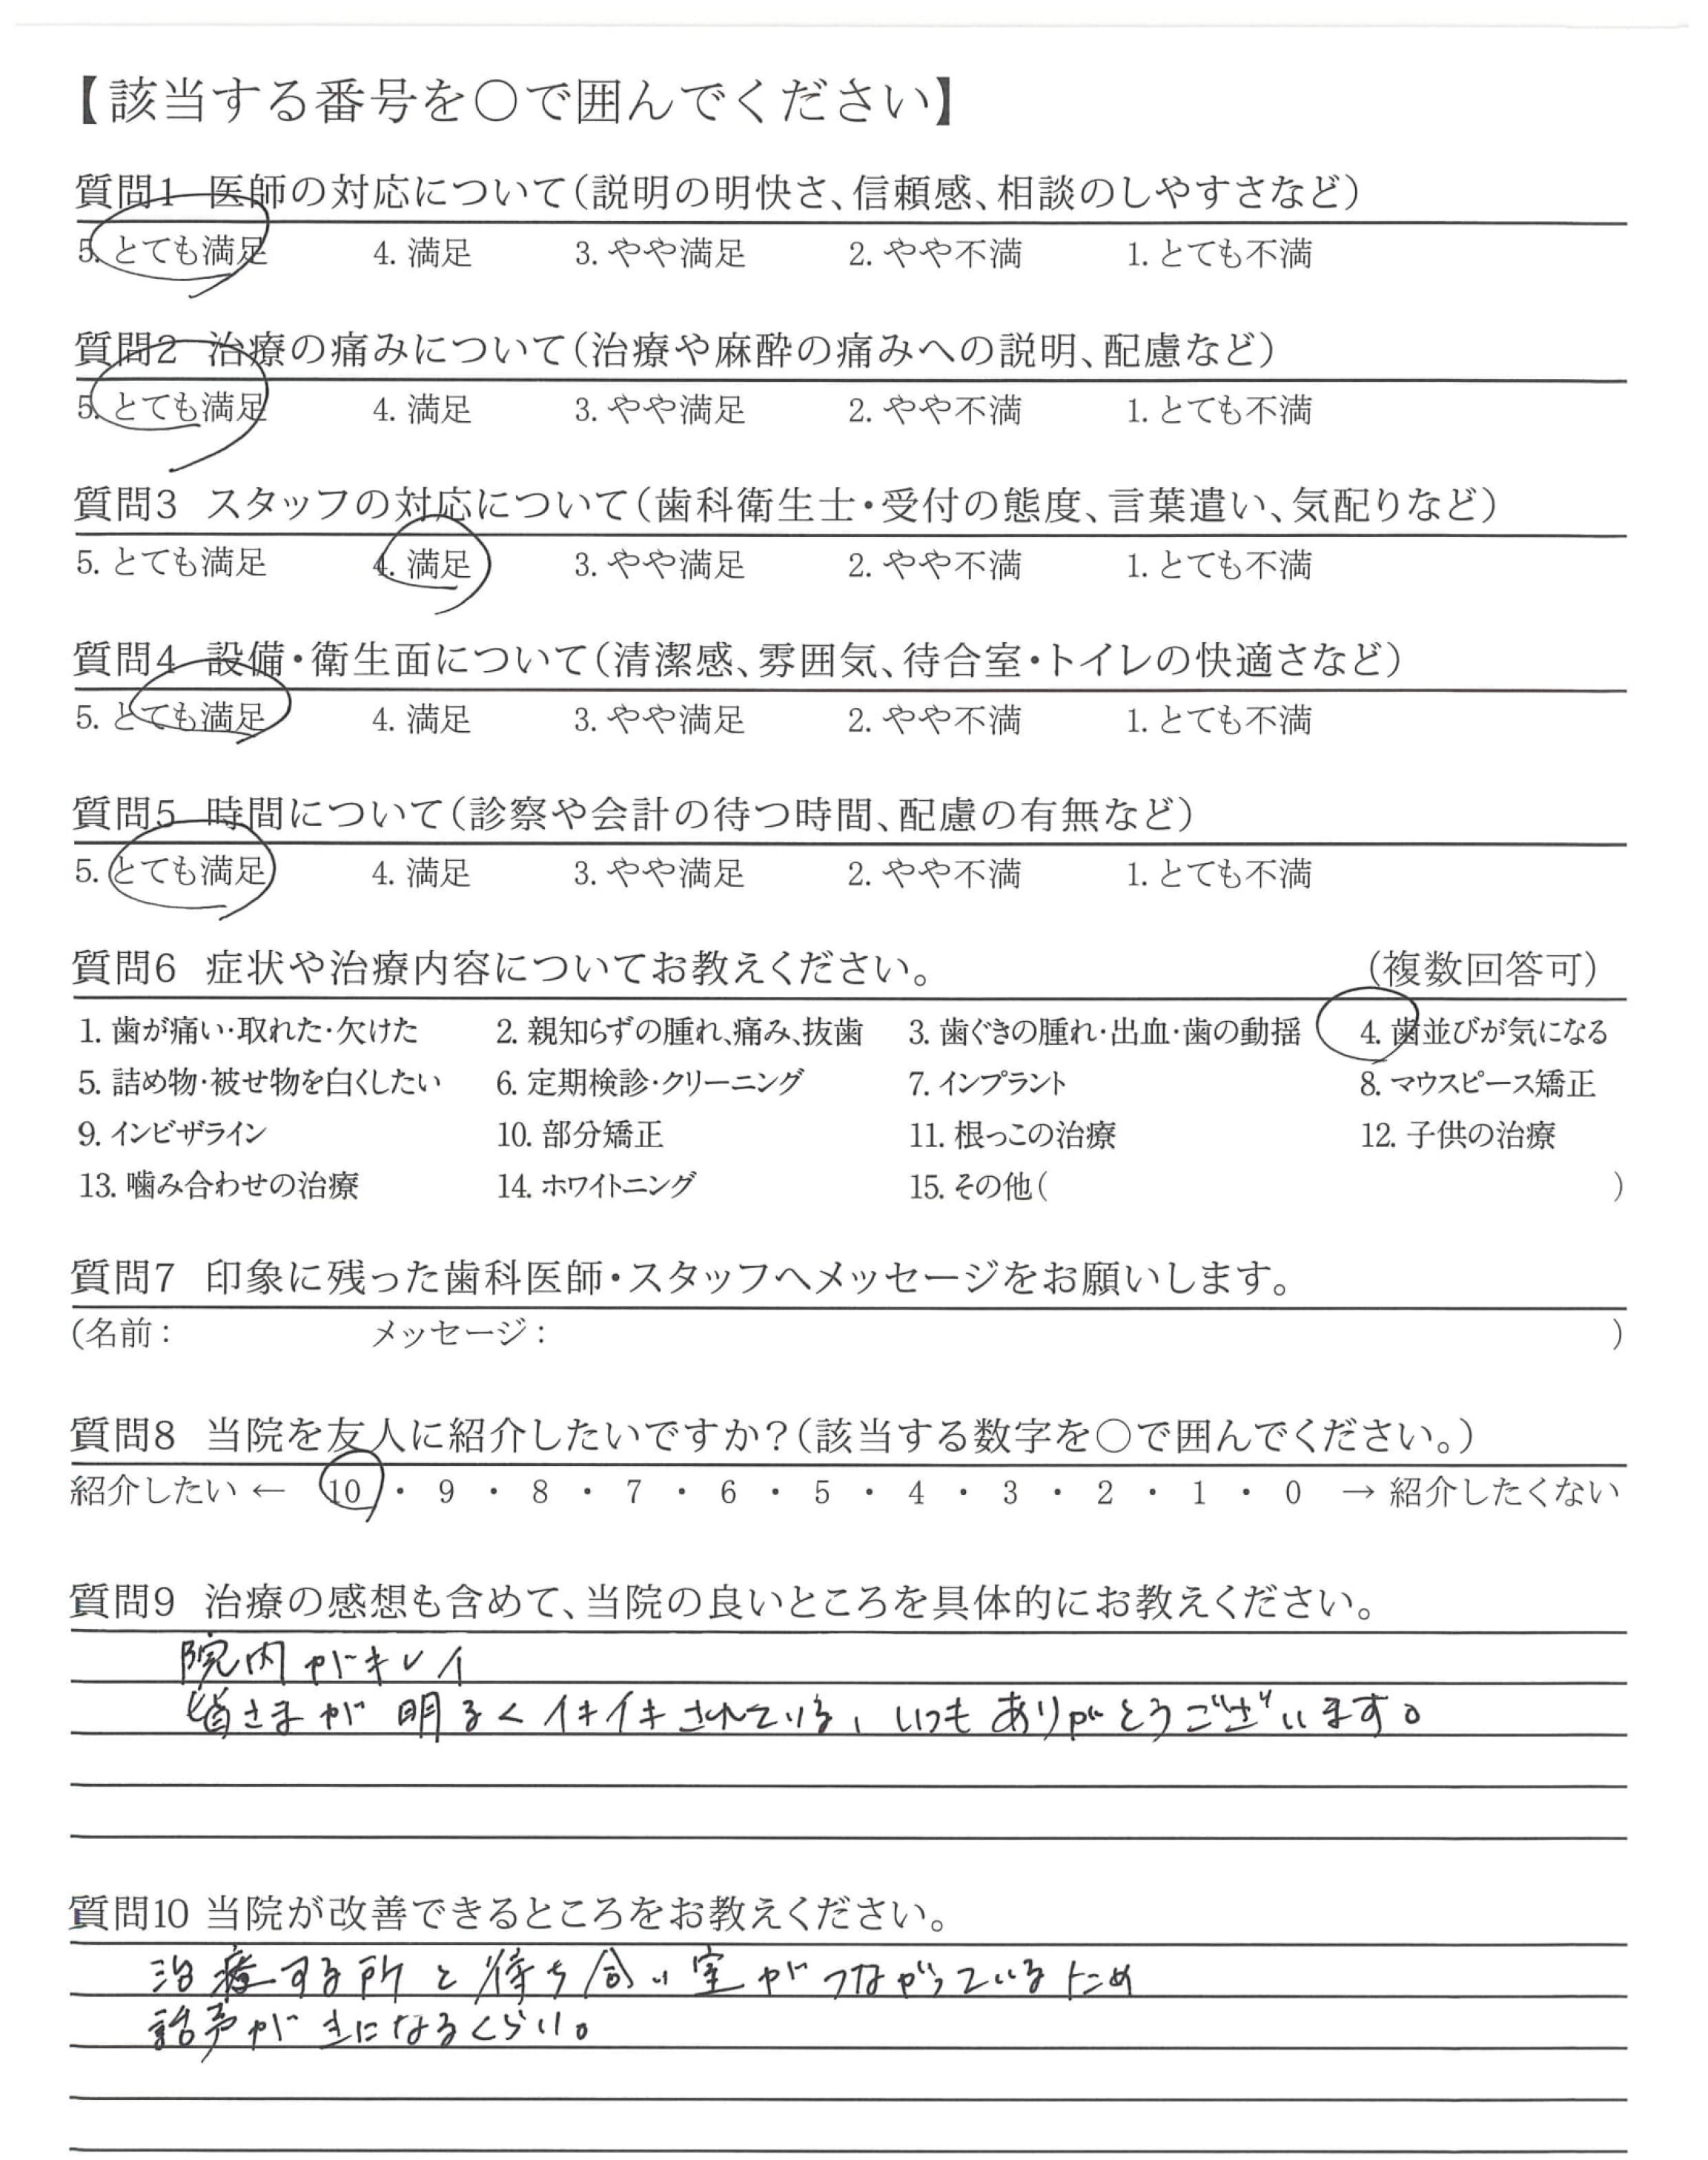 【該当する番号を○で囲んでください】
質問1 医師の対応について（説明の明快さ、信頼感、相談のしやすさなど）
5. とても満足 4. 満足 3. やや満足 2. やや不満 1. とても不満
質問2 治療の痛みについて（治療や麻酔の痛みへの説明、配慮など）
5. とても満足 4. 満足 3. やや満足 2. やや不満 1. とても不満
質問3 スタッフの対応について（歯科衛生士・受付の態度、言葉遣い、気配りなど）
5. とても満足 4. 満足 3. やや満足 2. やや不満 1. とても不満
質問4 設備・衛生面について（清潔感、雰囲気、待合室・トイレの快適さなど）
5. とても満足 4. 満足 3. やや満足 2. やや不満 1. とても不満
質問5 時間について（診察や会計の待つ時間、配慮の有無など）
5. とても満足 4. 満足 3. やや満足 2. やや不満 1. とても不満
質問6 症状や治療内容についてお教えください。 （複数回答可）
1. 歯が痛い・取れた・欠けた 2. 親知らずの腫れ、痛み、抜歯 3. 歯ぐきの腫れ・出血・歯の動揺 4. 歯並びが気になる
5. 詰め物・被せ物を白くしたい 6. 定期検診・クリーニング 7. インプラント 8. マウスピース矯正
9. インビザライン 10. 部分矯正 11. 根っこの治療 12. 子供の治療
13. 噛み合わせの治療 14. ホワイトニング 15. その他（ ）
質問7 印象に残った歯科医師・スタッフへメッセージをお願いします。
（名前： メッセージ： ）
質問8 当院を友人に紹介したいですか？（該当する数字を○で囲んでください。）
紹介したい ← 10 ・ 9 ・ 8 ・ 7 ・ 6 ・ 5 ・ 4 ・ 3 ・ 2 ・ 1 ・ 0 → 紹介したくない
質問9 治療の感想も含めて、当院の良いところを具体的にお教えください。
院内がキレイ
皆さまが明るくイキイキされている、いつもありがとうございます。
質問10 当院が改善できるところをお教えください。
治療する所と待ち合い室がつながっているため
話声が気になるくらい。